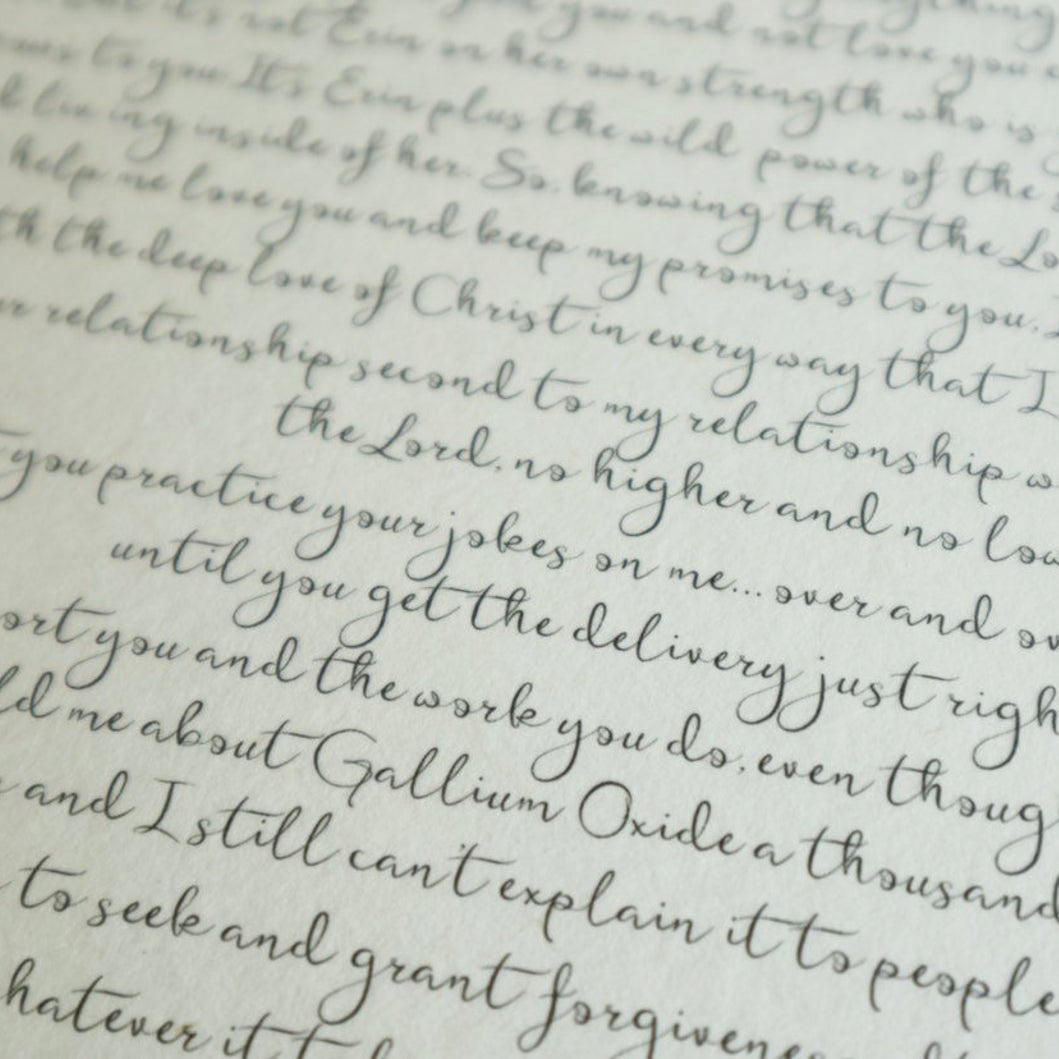 you and not love you
it's not Erin on her own strength who is
to you It's Erin plus the wild power of the
living inside of her. So, knowing that the Lo
help me love you and keep my promises to you.
th the deep love of Christ in every way that I
relationship second to my relationship w
the Lord, no higher and no low
you practice your jokes on me... over and ov
until you get the delivery just righ
ort you and the work you do, even thoug
ld me about Gallium Oxide a thousand
and I still can't explain it to people
to seek and grant forgivenes
hatever it t